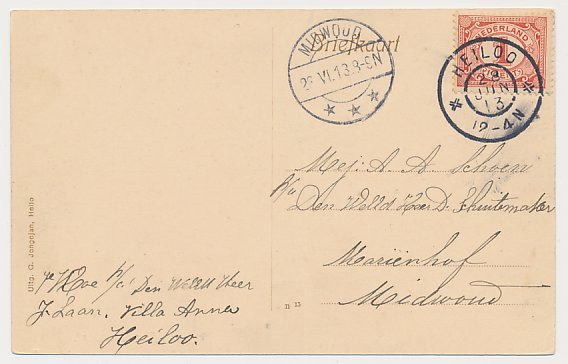 Briefkaart
MIDWOUD
28.VI.13.8-6N
NEDERLAND
HEILOO
28
JUN
13
12-4N
Mej: A. A Schoen
p/a Den WelEd Heer D. Schuitemaker
Mariënhof
Midwoud
Uitg. G. Jongejan, Heilo
p/a Den WelEd Heer
J. Laan. Villa Anna
Heiloo.
11 13